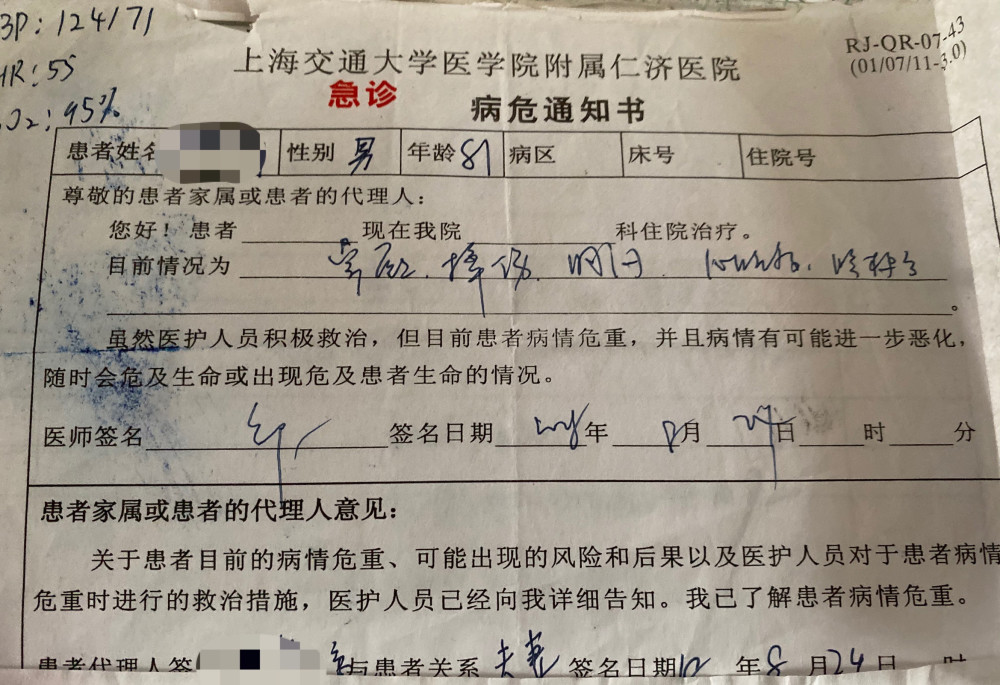 BP: 124/71
HR: 55
O2: 95%
RJ-QR-07-43
(01/07/11-3.0)
上海交通大学医学院附属仁济医院
急诊
病危通知书
患者姓名 性别 男 年龄 81 病区 床号 住院号
尊敬的患者家属或患者的代理人：
您好！患者 现在我院 科住院治疗。
目前情况为
。
虽然医护人员积极救治，但目前患者病情危重，并且病情有可能进一步恶化，
随时会危及生命或出现危及患者生命的情况。
医师签名 签名日期 年 8月 24日 时 分
患者家属或患者的代理人意见：
关于患者目前的病情危重、可能出现的风险和后果以及医护人员对于患者病情
危重时进行的救治措施，医护人员已经向我详细告知。我已了解患者病情危重。
患者代理人签 与患者关系 夫妻 签名日期 12 年 8 月 24 日 时